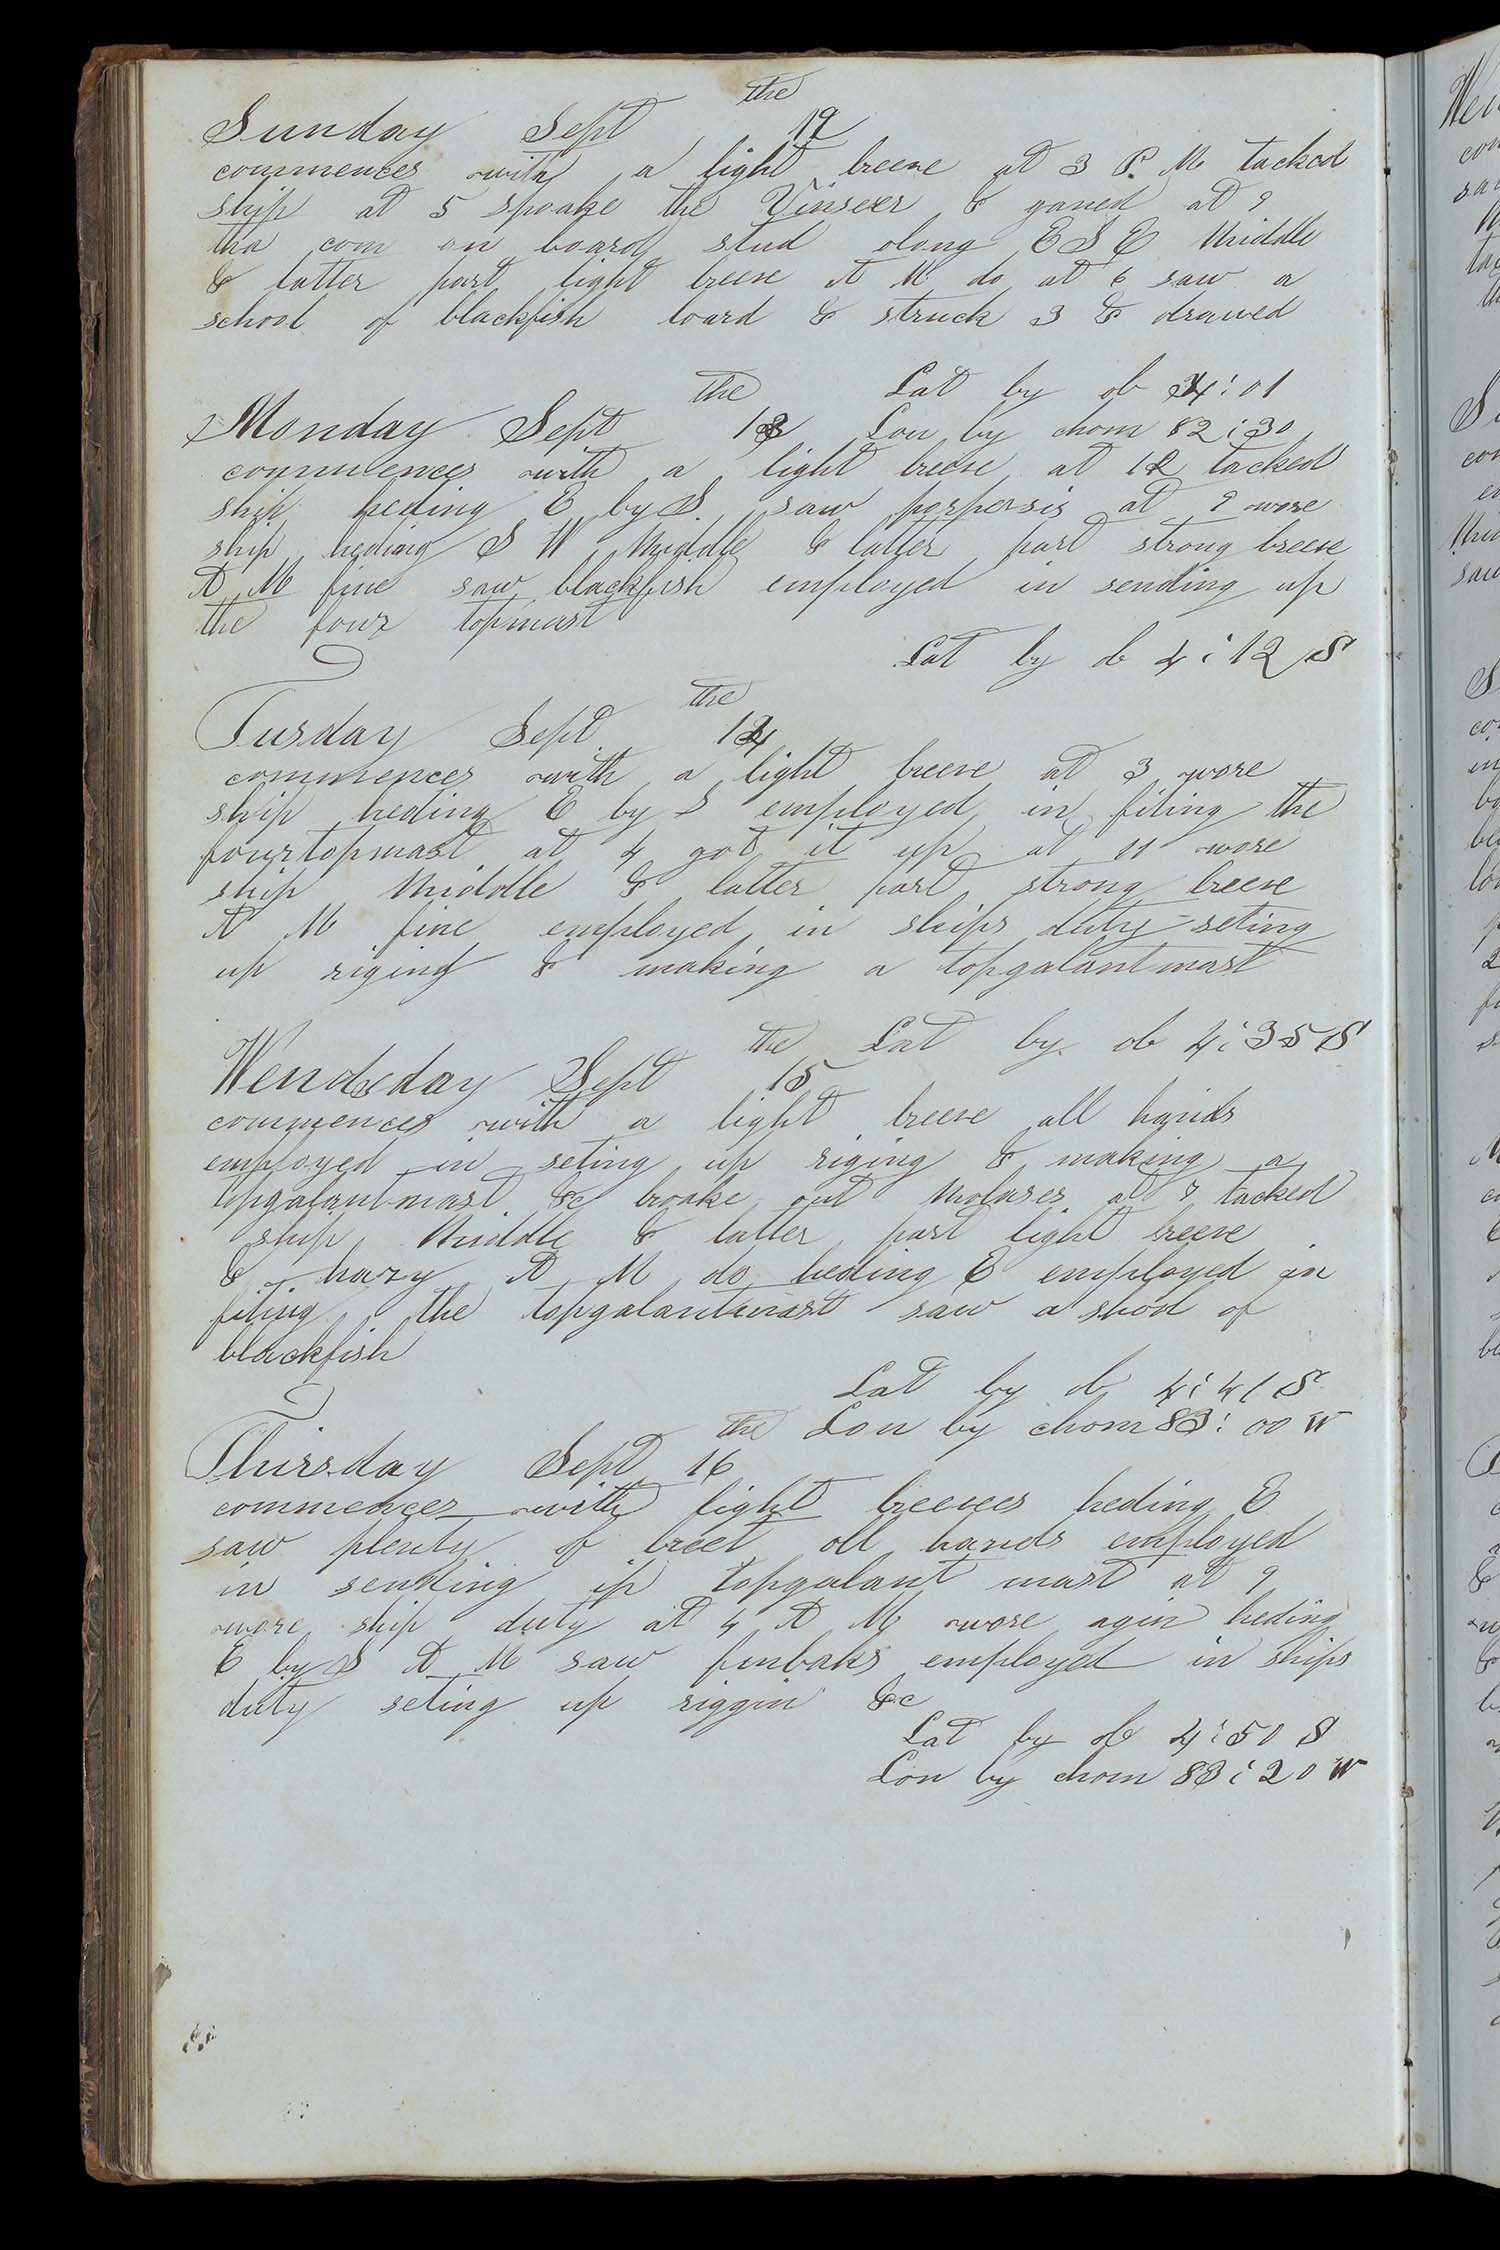 the
Sunday Sept 12
commences with a light breese at 3 P. M tacked
ship at 5 spoake the & gamed at 9
tha com on board stud along E S E Middle
& latter part light breese A M do at 6 saw a
school of blackfish loard & struck 3 & drawed
the Lat by ob 4 : 01
Monday Sept 13 Lon by chom 82 : 30
commences with a light breese at 12 tacked
ship heding E by S. saw porpersis at 9 wore
ship heding S W Middle & latter part strong breese
A M fine saw blackfish employed in sending up
the four topmast
Lat by ob 4 : 12 S
the
Tusday Sept 14
commences with a light breese at 3 wore
ship heding E by S employed in fiting the
fourtopmast at 4 got it up at 11 wore
ship Middle & latter part strong breese
A M fine employed in ships duty seting
up riging & making a topgalantmast
the Lat by ob 4 : 35 S
Wendsday Sept 15
commences with a light breese all hands
employed in seting up riging & making a
topgalantmast &c broake out Molases at 7 tacked
ship Middle & latter part light breese
& hazy A M do heding E employed in
fiting the topgalantmast saw a shool of
blackfish
Lat by ob 4 : 41 S
the Lon by chom 83 : 00 W
Thirsday Sept 16
commences with light breeses heding E
saw plenty of breet all hands employed
in sending up topgalant mast at 9
wore ship duty at 4 A M wore agin heding
E by S A M saw finbaks employed in ships
duty seting up riggin &c
Lat by ob 4 : 50 S
Lon by chom 83 : 20 W